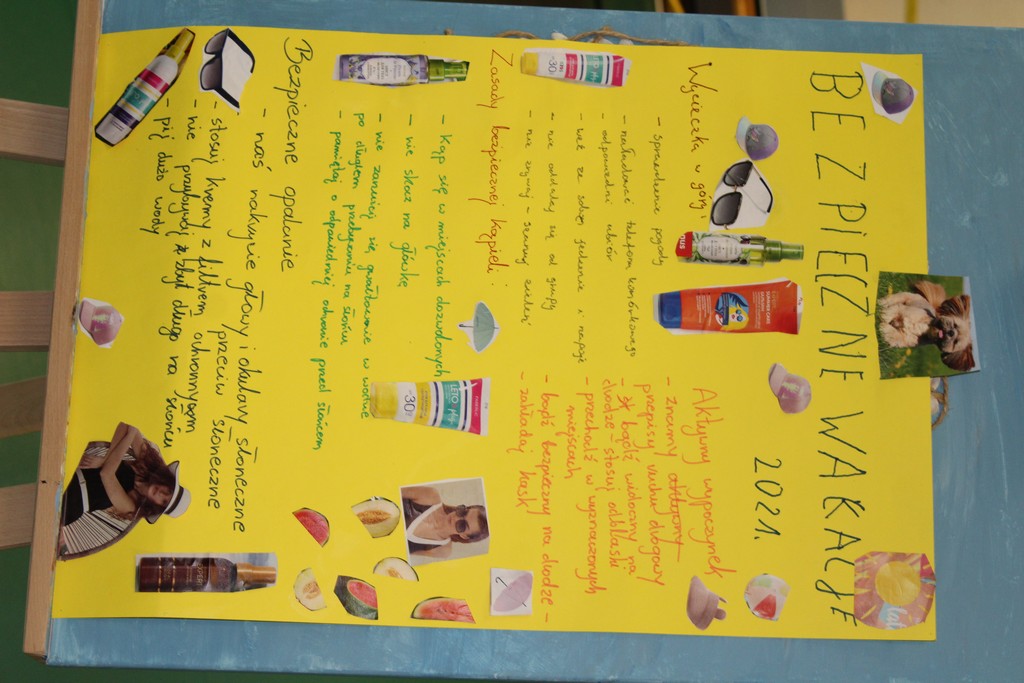 BEZPIECZNE WAKACJE
2021.
Wycieczka w góry.
- sprawdzenie pogody
- naładować telefon komórkowego
- odpowiedni ubiór
- weź ze sobą jedzenie i napoje
- nie oddalaj się od grupy
- nie zrywaj - szanuj zieleń
Aktywny wypoczynek
- znamy
przepisy ruchu drogowy
- bądź widoczny na
drodze - stosuj odblaski
- przechodź w wyznaczonych
miejscach
- bądź bezpieczny na drodze -
- zakładaj kask
Zasady bezpiecznej kąpieli:
- Kąp się w miejscach dozwolonych
- nie skacz na główkę
- nie zanurzaj się gwałtownie w wodzie
po długim przebywaniu na słońcu
- pamiętaj o odpowiedniej ochronie przed słońcem
Bezpieczne opalanie
- noś nakrycie głowy i okulary słoneczne
przeciw słoneczne
- stosuj kremy z filtrem ochronnym
- nie przebywaj zbyt długo na słońcu
- pij dużo wody
LETO
30
LETO
30
lato